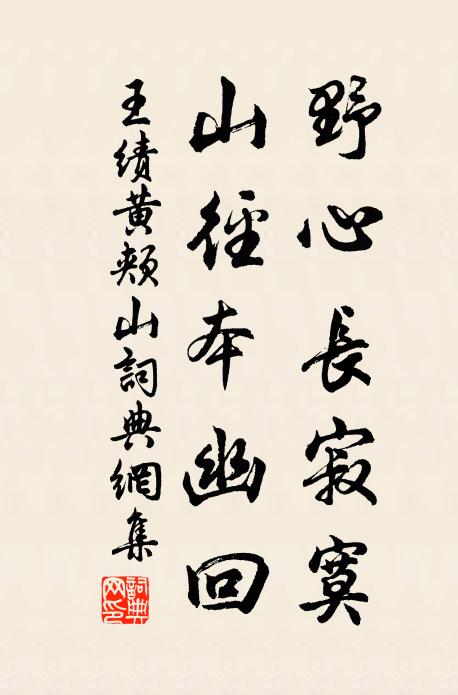 野心長寂寞
山徑本幽回
王績黃頰山詞典網集
詞典網印